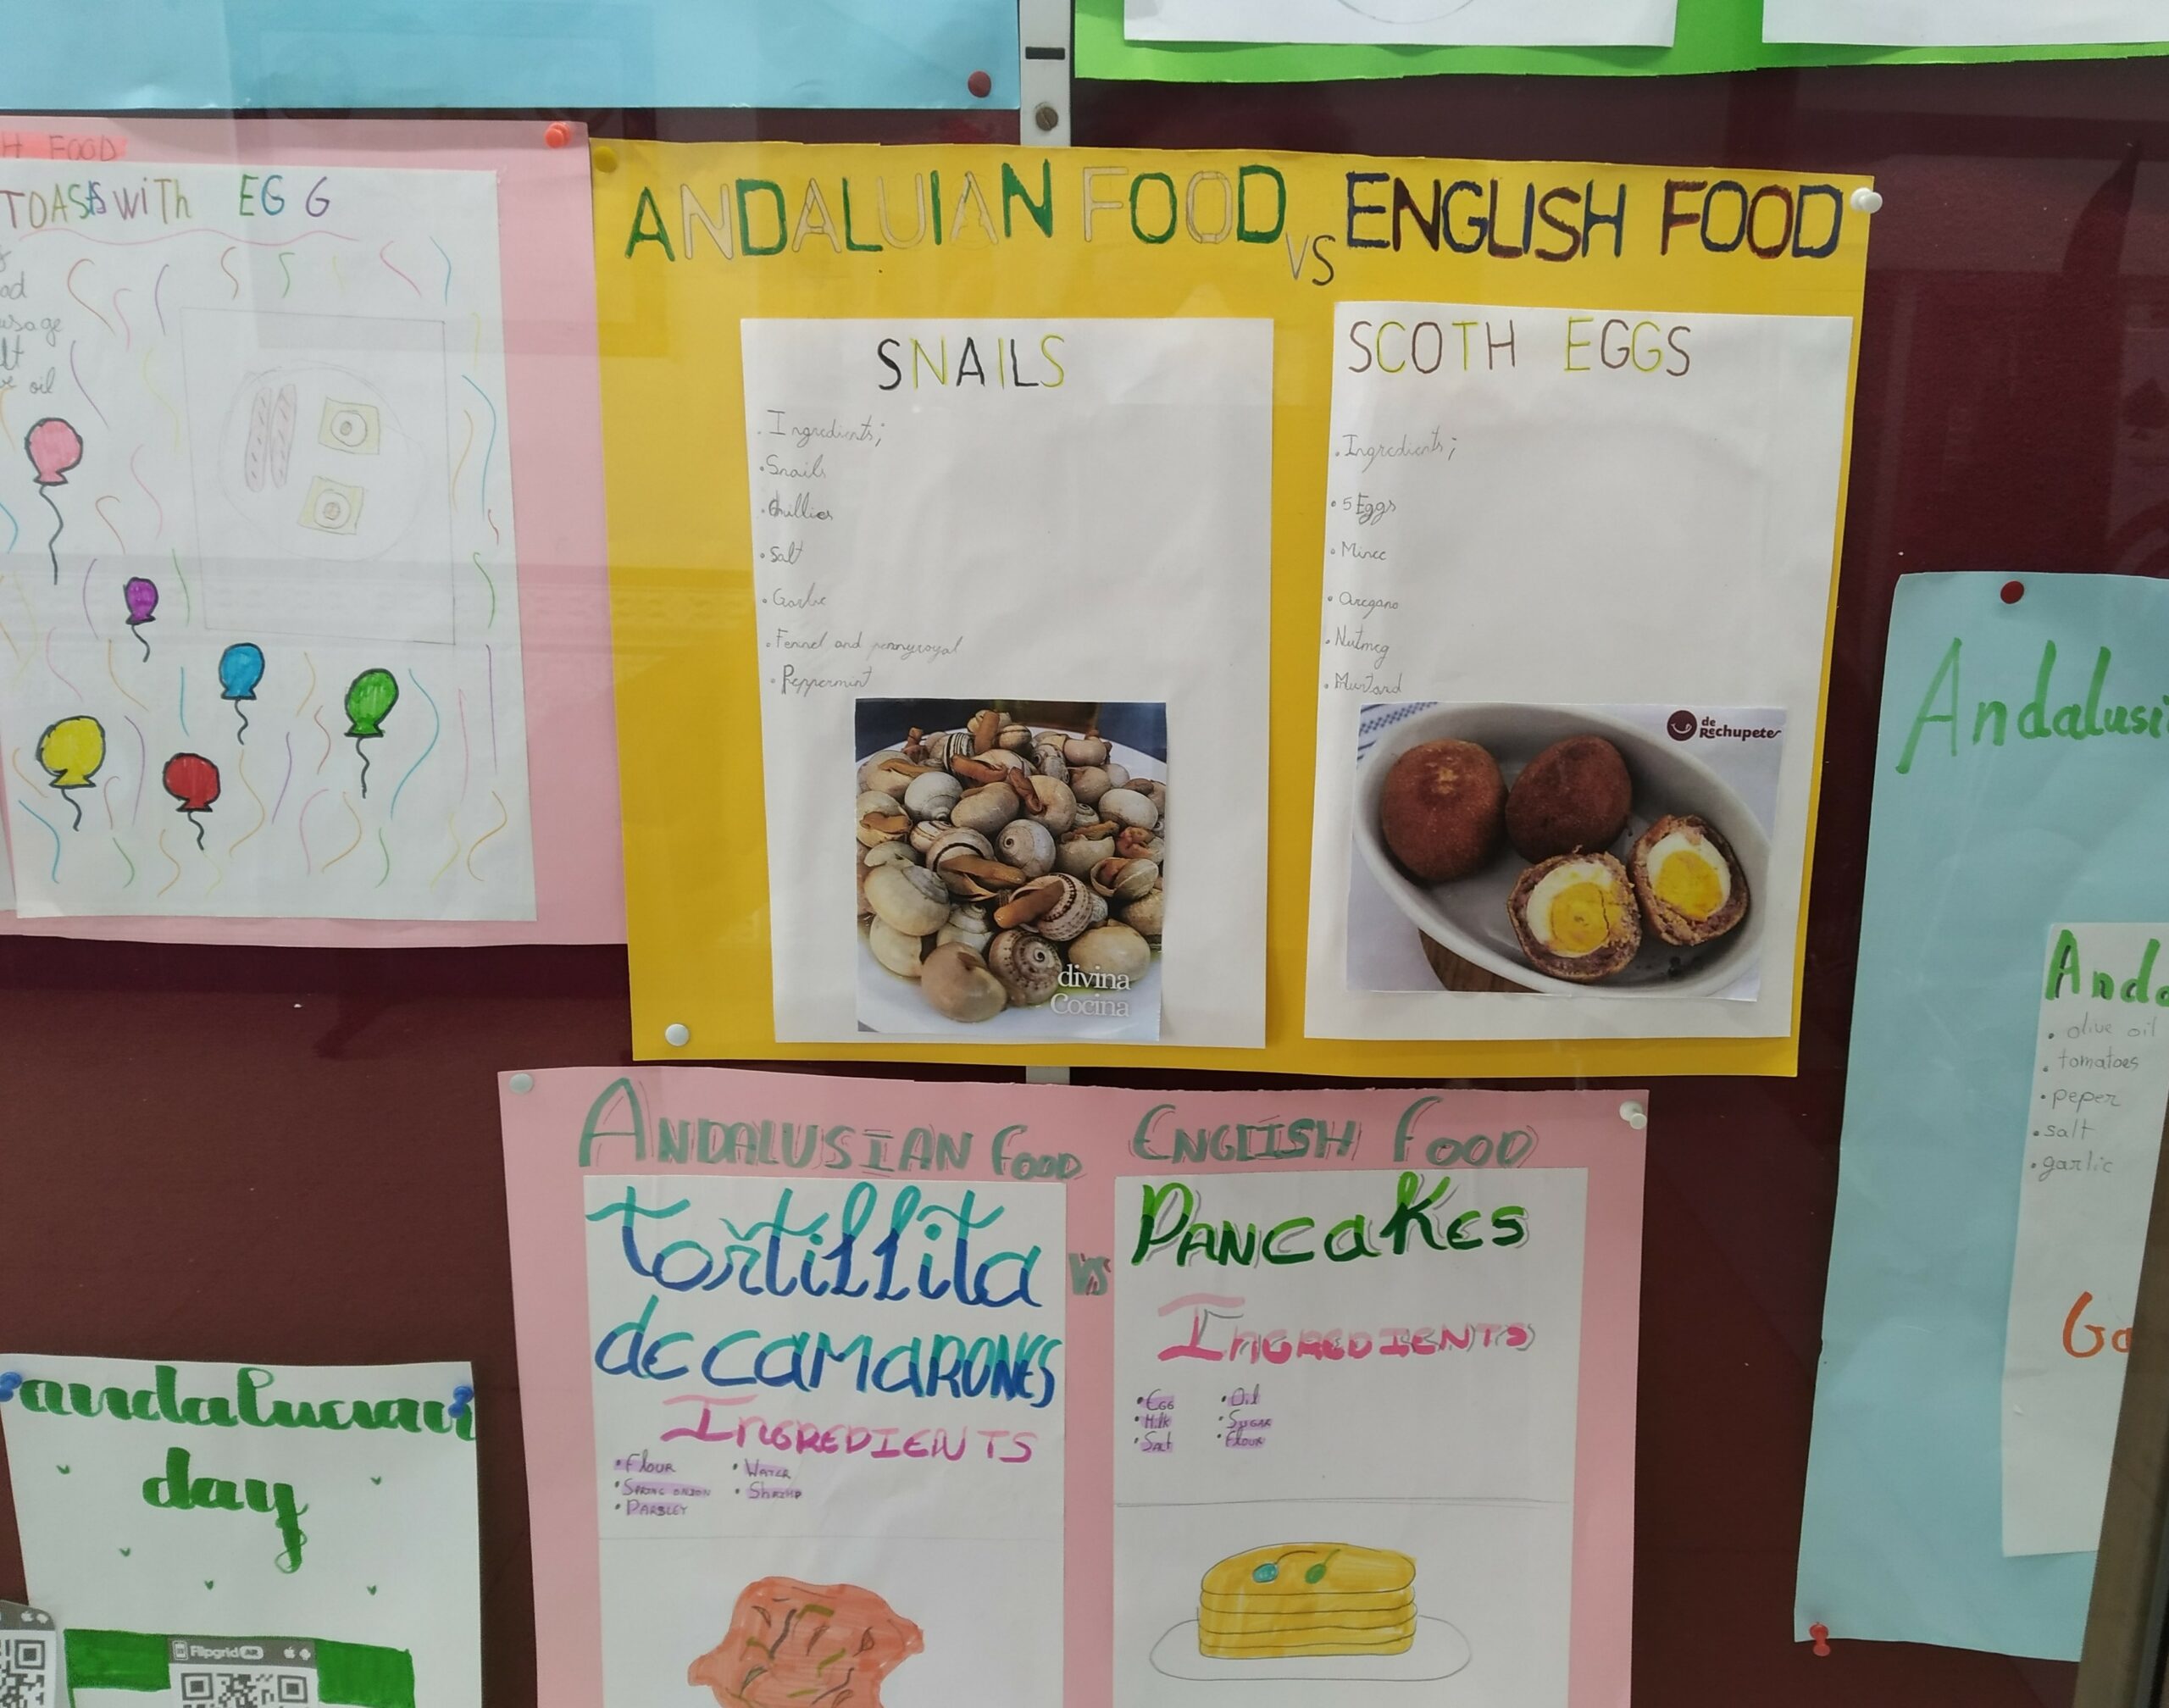 H FOOD
TOASTS WiTh EGG
ad
usage
lt
ve oil
ANDALUIAN FOOD VS ENGLISH FOOD
SNAILS
Ingredients;
Snails
Chillies
Salt
Garlic
Fennel and pennyroyal
Peppermint
divina
Cocina
SCOTH EGGS
Ingredients;
5 Eggs
Mince
Oregano
Nutmeg
Mustard
de
Rechupete
ANDALUSIAN Food
Tortillita
de CAMARONES
INGREDIENTS
FLOUR
SPRING ONION
PARSLEY
WATER
SHRIMP
VS
ENGLISH Food
PANCAKES
INGREDIENTS
EGG
Milk
SALT
Oil
SUGAR
FLOUR
Andalusi
Anda
olive oil
tomatoes
peper
salt
garlic
Ga
andalucian
day
Flipgrid AR